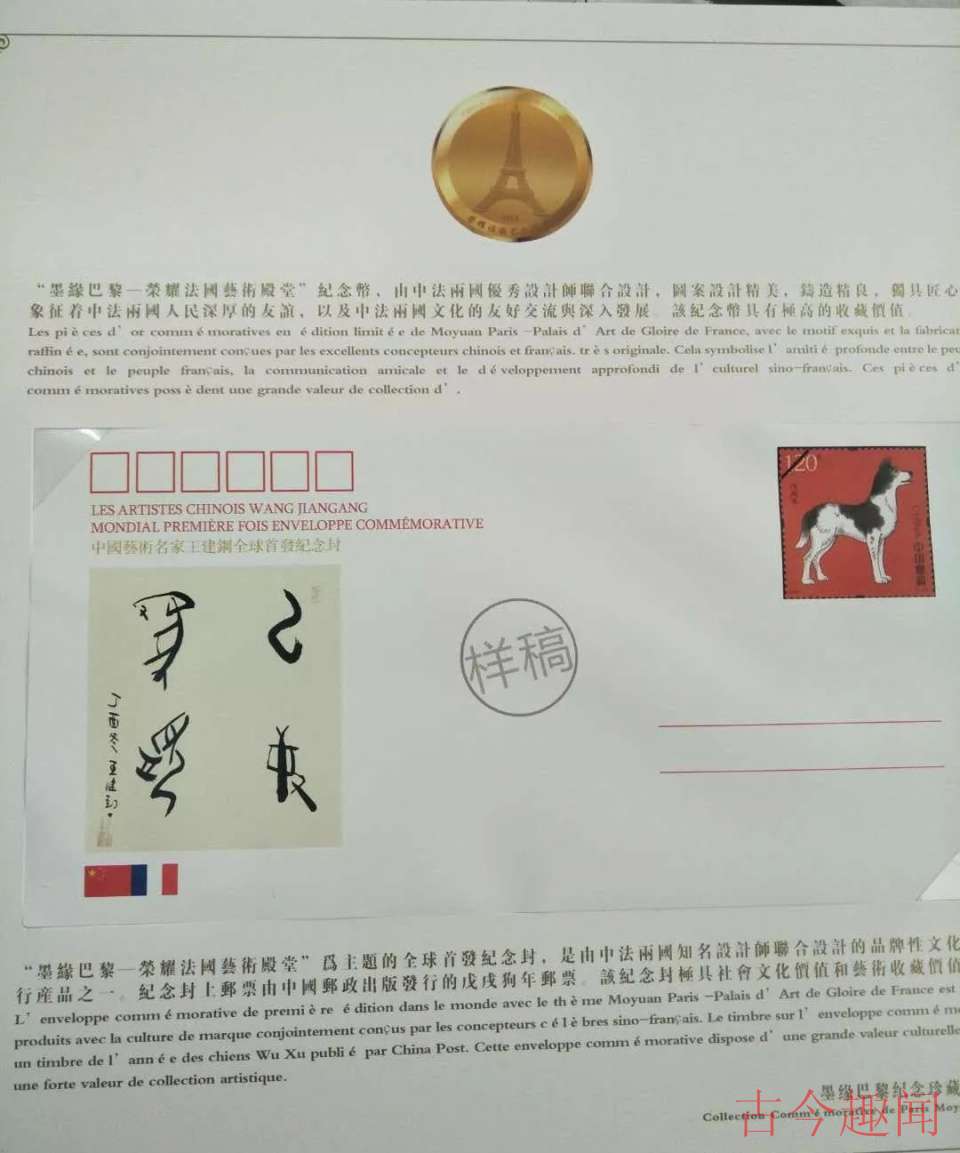 “墨緣巴黎—榮耀法國藝術殿堂”紀念幣，由中法兩國優秀設計師聯合設計，圖案設計精美，鑄造精良，獨具匠心
象征着中法兩國人民深厚的友誼，以及中法兩國文化的友好交流與深入發展。該紀念幣具有極高的收藏價值。
Les pi è ces d’ or comm é moratives en é dition limit é e de Moyuan Paris –Palais d’ Art de Gloire de France, avec le motif exquis et la fabrican
raffin é e, sont conjointement conçues par les excellents concepteurs chinois et français. tr è s originale. Cela symbolise l’ amiti é profonde entre le peu
chinois et le peuple français, la communication amicale et le d é veloppement approfondi de l’ culturel sino–français. Ces pi è ces d’
comm é moratives poss è dent une grande valeur de collection d’ .
LES ARTISTES CHINOIS WANG JIANGANG
MONDIAL PREMIÈRE FOIS ENVELOPPE COMMÉMORATIVE
中國藝術名家王建鋼全球首發紀念封
120
中国邮政
样稿
丁酉冬王建
“墨緣巴黎—榮耀法國藝術殿堂”爲主題的全球首發紀念封，是由中法兩國知名設計師聯合設計的品牌性文化
行産品之一。紀念封上郵票由中國郵政出版發行的戊戌狗年郵票。該紀念封極具社會文化價值和藝術收藏價值
L’ enveloppe comm é morative de premi è re é dition dans le monde avec le th è me Moyuan Paris –Palais d’ Art de Gloire de France est
produits avec la culture de marque conjointement conçus par les concepteurs c é l è bres sino–français. Le timbre sur l’ enveloppe comm é mo
un timbre de l’ ann é e des chiens Wu Xu publi é par China Post. Cette enveloppe comm é morative dispose d’ une grande valeur culturelle
une forte valeur de collection artistique.
墨緣巴黎纪念珍藏
Collection Comm é morative de Paris Moy
古今趣闻